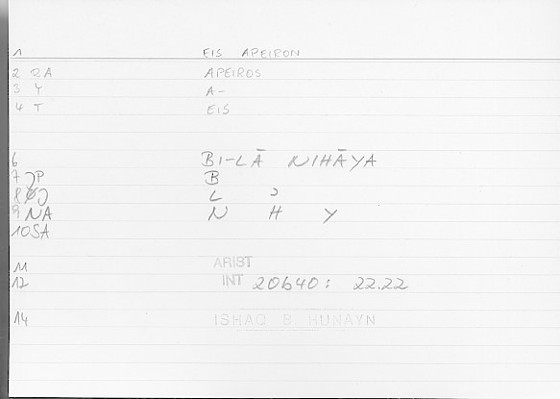 1 EIS APEIRON
2 RA APEIROS
3 Y A-
4 T EIS
6 BI-LĀ NIHĀYA
7 JP B
8 L ʾ
9 NA N H Y
10 SA
11 ARIST
12 INT 20b40: 22.22
14 ISHAQ B. HUNAYN